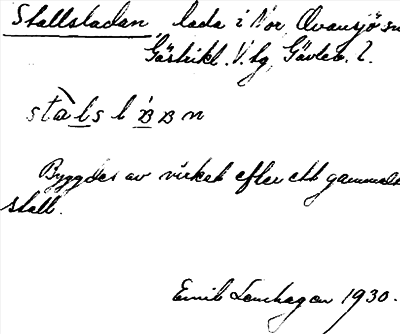 Stallsladan lada i Nor, Ovansjö sn
Gästrikl. V. tg, Gävleb. l.
Byggdes av virket efter ett gammalt
stall.
Emil Lenhagen 1930.